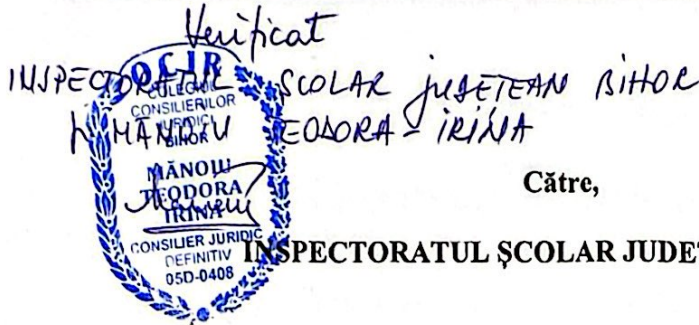 Verificat
INSPECTORATUL ȘCOLAR JUDEȚEAN BIHOR
MĂNOIU TEODORA - IRINA
OCJR
COLEGIUL
CONSILIERILOR
JURIDICI
BIHOR
MĂNOIU
TEODORA
IRINA
CONSILIER JURIDIC
DEFINITIV
05D-0408
Către,
INSPECTORATUL ȘCOLAR JUDEȚ